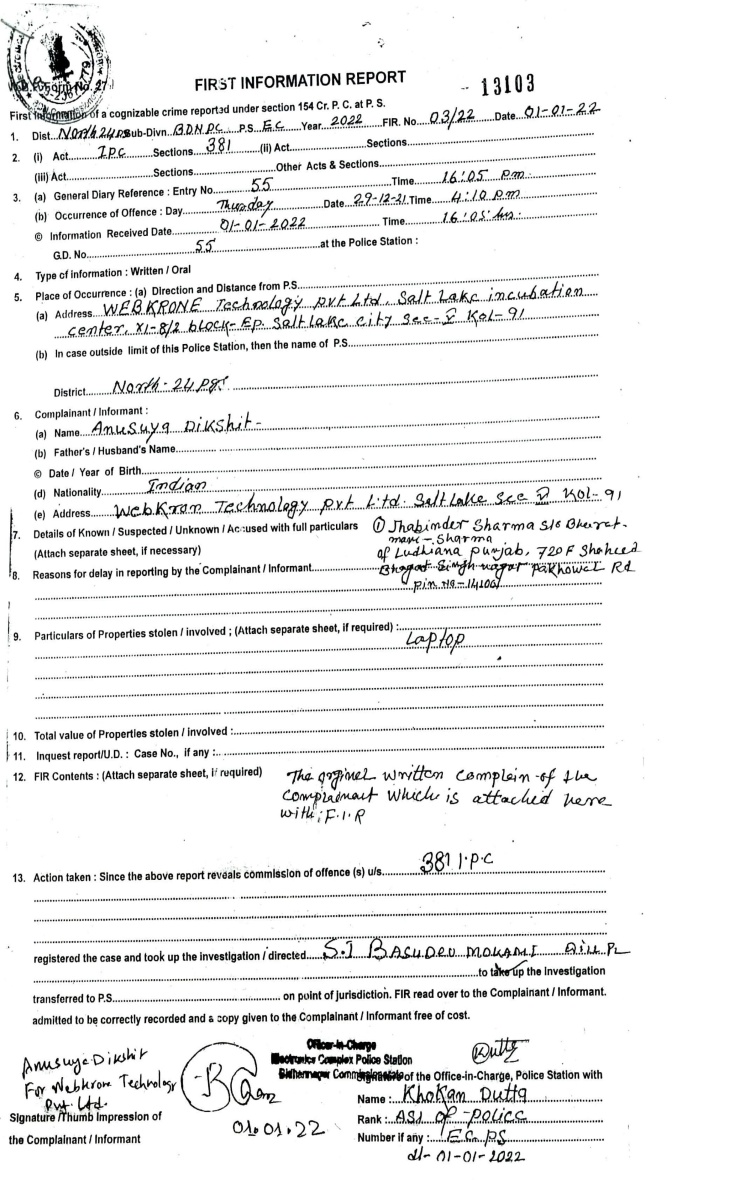 W.B. Form No. 27
FIRST INFORMATION REPORT
13103
First Information of a cognizable crime reported under section 154 Cr. P. C. at P. S.
1. Dist. North 24 Pgs Sub-Divn. BDNPC P.S. EC Year 2022 FIR. No. 03/22 Date 01-01-22
2. (i) Act IPC Sections 381 (ii) Act Sections
(iii) Act Sections Other Acts & Sections
3. (a) General Diary Reference : Entry No. 55 Time 16:05 pm.
(b) Occurrence of Offence : Day Thursday Date 29-12-21 Time 4:10 pm
© Information Received Date 01-01-2022 Time 16:05 hrs.
G.D. No. 55 at the Police Station :
4. Type of information : Written / Oral
5. Place of Occurrence : (a) Direction and Distance from P.S.
(a) Address WEBKRONE Technology pvt Ltd. Salt Lake incubation
center, X1-8/2 block-Ep. Salt lake city Sec-V Kol-91
(b) In case outside limit of this Police Station, then the name of P.S.
District North-24 pgs.
6. Complainant / Informant :
(a) Name Anusuya Dikshit-
(b) Father's / Husband's Name
© Date / Year of Birth
(d) Nationality Indian
(e) Address WebKron Technology pvt Ltd. Salt Lake Sec V Kol-91
7. Details of Known / Suspected / Unknown / Accused with full particulars ① Jhabinder Sharma S/o Bharat-
mani-Sharma
(Attach separate sheet, if necessary) of Ludhiana punjab, 720 F Shaheed
8. Reasons for delay in reporting by the Complainant / Informant Bhagat Singh nagar Pakhowal Rd
pin no-141001
9. Particulars of Properties stolen / involved ; (Attach separate sheet, if required) :
Laptop
10. Total value of Properties stolen / involved :
11. Inquest report/U.D. : Case No., if any :
12. FIR Contents : (Attach separate sheet, if required) The orginel written complein of the
Complainant Which is attached here
with; F.I.R
13. Action taken : Since the above report reveals commission of offence (s) u/s. 381 I.P.C
registered the case and took up the investigation / directed S.I BASUDEV
to take up the Investigation
transferred to P.S. on point of jurisdiction. FIR read over to the Complainant / Informant.
admitted to be correctly recorded and a copy given to the Complainant / Informant free of cost.
Officer-in-Charge
Electronics Complex Police Station
Bidhannagar Commissionerate
Anusuya Dikshit
For Webkrone Technology
Pvt. Ltd.
Signature /Thumb Impression of
the Complainant / Informant
01.01.22
KDutta
Signature of the Office-in-Charge, Police Station with
Name : Khokan Dutta
Rank : ASI of Police
Number if any : EC PS
dt- 01-01-2022